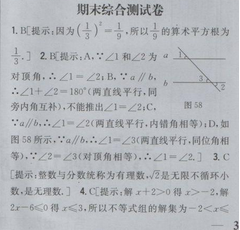 期末综合测试卷
1. B[提示:因为(1/3)²=1/9,所以1/9的算术平方根为
1/3.] 2. B[提示:A. ∵∠1和∠2为
对顶角,∴∠1=∠2;B. ∵a∥b,
∴∠1+∠2=180°(两直线平行,同
旁内角互补),不能推出∠1=∠2;C.
∵a∥b,∴∠1=∠2(两直线平行,内错角相等);D. 如
图58所示,∵a∥b,∴∠1=∠3(两直线平行,同位角相
等),∵∠2=∠3(对顶角相等),∴∠1=∠2.] 3. C
[提示:整数与分数统称为有理数,√2是无限不循环小
数,是无理数.] 4. C[提示:解x+2>0得x>-2,解
2x-6≤0得x≤3,所以不等式组的解集为-2<x≤
a
1
b
3
2
图58
— 3